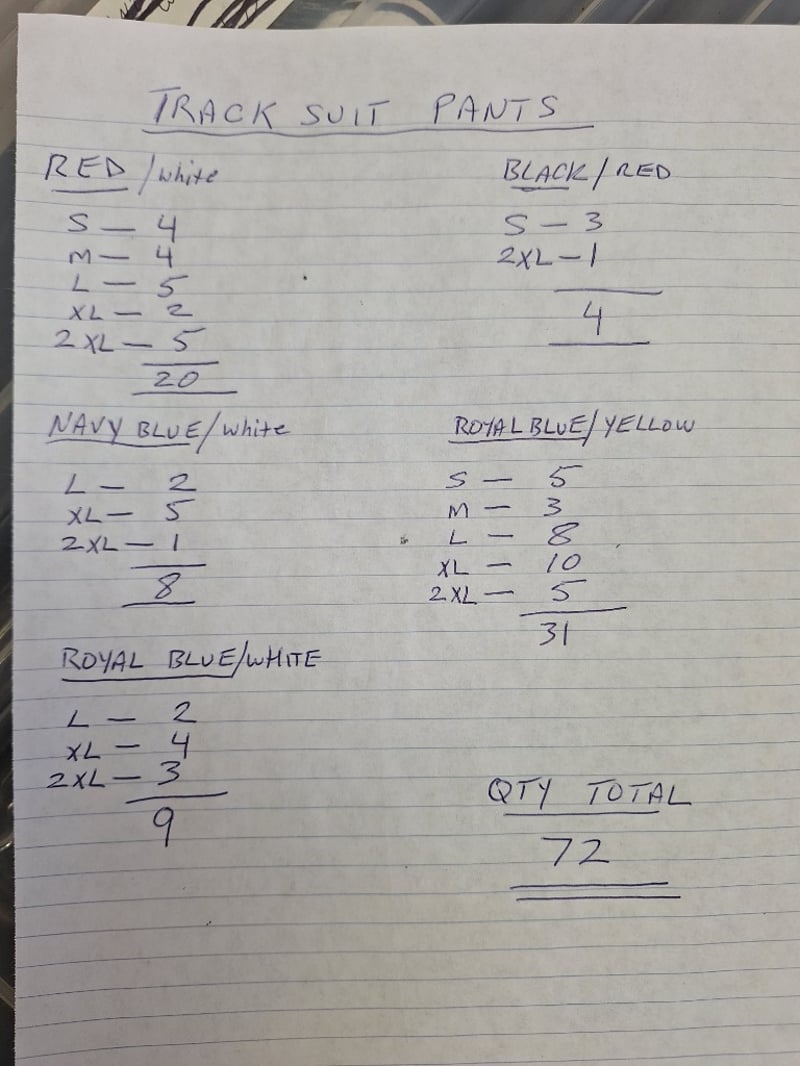 TRACK SUIT PANTS
RED/white
S — 4
M — 4
L — 5
XL — 2
2XL — 5
20
BLACK/RED
S — 3
2XL — 1
4
NAVY BLUE/white
L — 2
XL — 5
2XL — 1
8
ROYAL BLUE/YELLOW
S — 5
M — 3
L — 8
XL — 10
2XL — 5
31
ROYAL BLUE/WHITE
L — 2
XL — 4
2XL — 3
9
QTY TOTAL
72